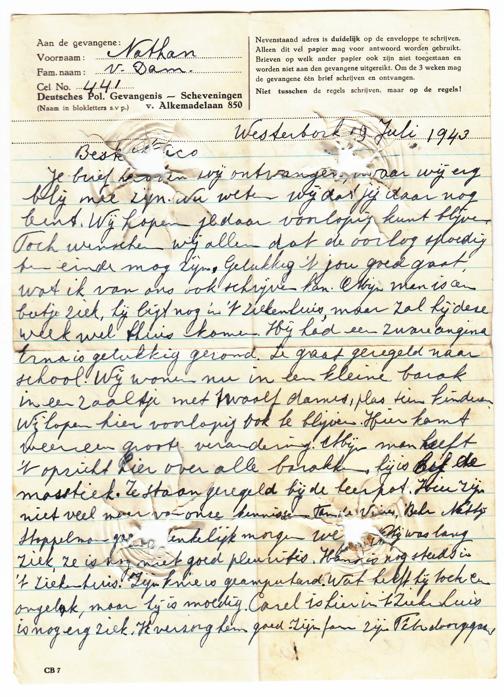 Aan de gevangene:
Voornaam: Nathan
Fam. naam: v. Dam.
Cel No. 441
Deutsches Pol. Gevangenis — Scheveningen
(Naam in blokletters s.v.p.) v. Alkemadelaan 850
Nevenstaand adres is duidelijk op de enveloppe te schrijven.
Alleen dit vel papier mag voor antwoord worden gebruikt.
Brieven op welk ander papier ook zijn niet toegestaan en
worden niet aan den gevangene uitgereikt. Om de 3 weken mag
de gevangene één brief schrijven en ontvangen.
Niet tusschen de regels schrijven, maar op de regels!
Westerbork 19 Juli 1943
Beste Nico
Je brief wij ontvangen, waar wij erg
blij mee zijn. Nu weten wij dat jij daar nog
bent. Wij hopen je daar voorloopig kunt blijven
Toch wenschen wij allen dat de oorlog spoedig
ten einde mag zijn. Gelukkig 't jou goed gaat,
wat ik van ons ook schrijven kan. Mijn man is een
beetje ziek, hij ligt nog in 't ziekenhuis, maar zal hij deze
week wel thuis komen. Hij had een zware angina
Erna is gelukkig gezond. Ze gaat geregeld naar
school. Wij wonen nu in een kleine barak
in een zaaltje met twaalf dames, plus tien kinderen
Wij hopen hier voorloopig ook te blijven. Hier komt
weer een groote verandering. Mijn man heeft
't opzicht hier over alle barakken, hij is de
Ze staan geregeld bij de Hier zijn
niet veel meer van onze kennissen Fam de Vries,
Stoppelman morgen we Hij was lang
ziek, ze is nog niet goed pleuritis. Hans is nog steeds in
't ziekenhuis. Zijn knie is geamputeerd. Wat heeft hij toch een
ongeluk, maar hij is moedig. Carel is hier in 't ziekenhuis
is nog erg ziek. Ik verzorg hem goed zijn fam zijn Febr doorgegaan
CB 7